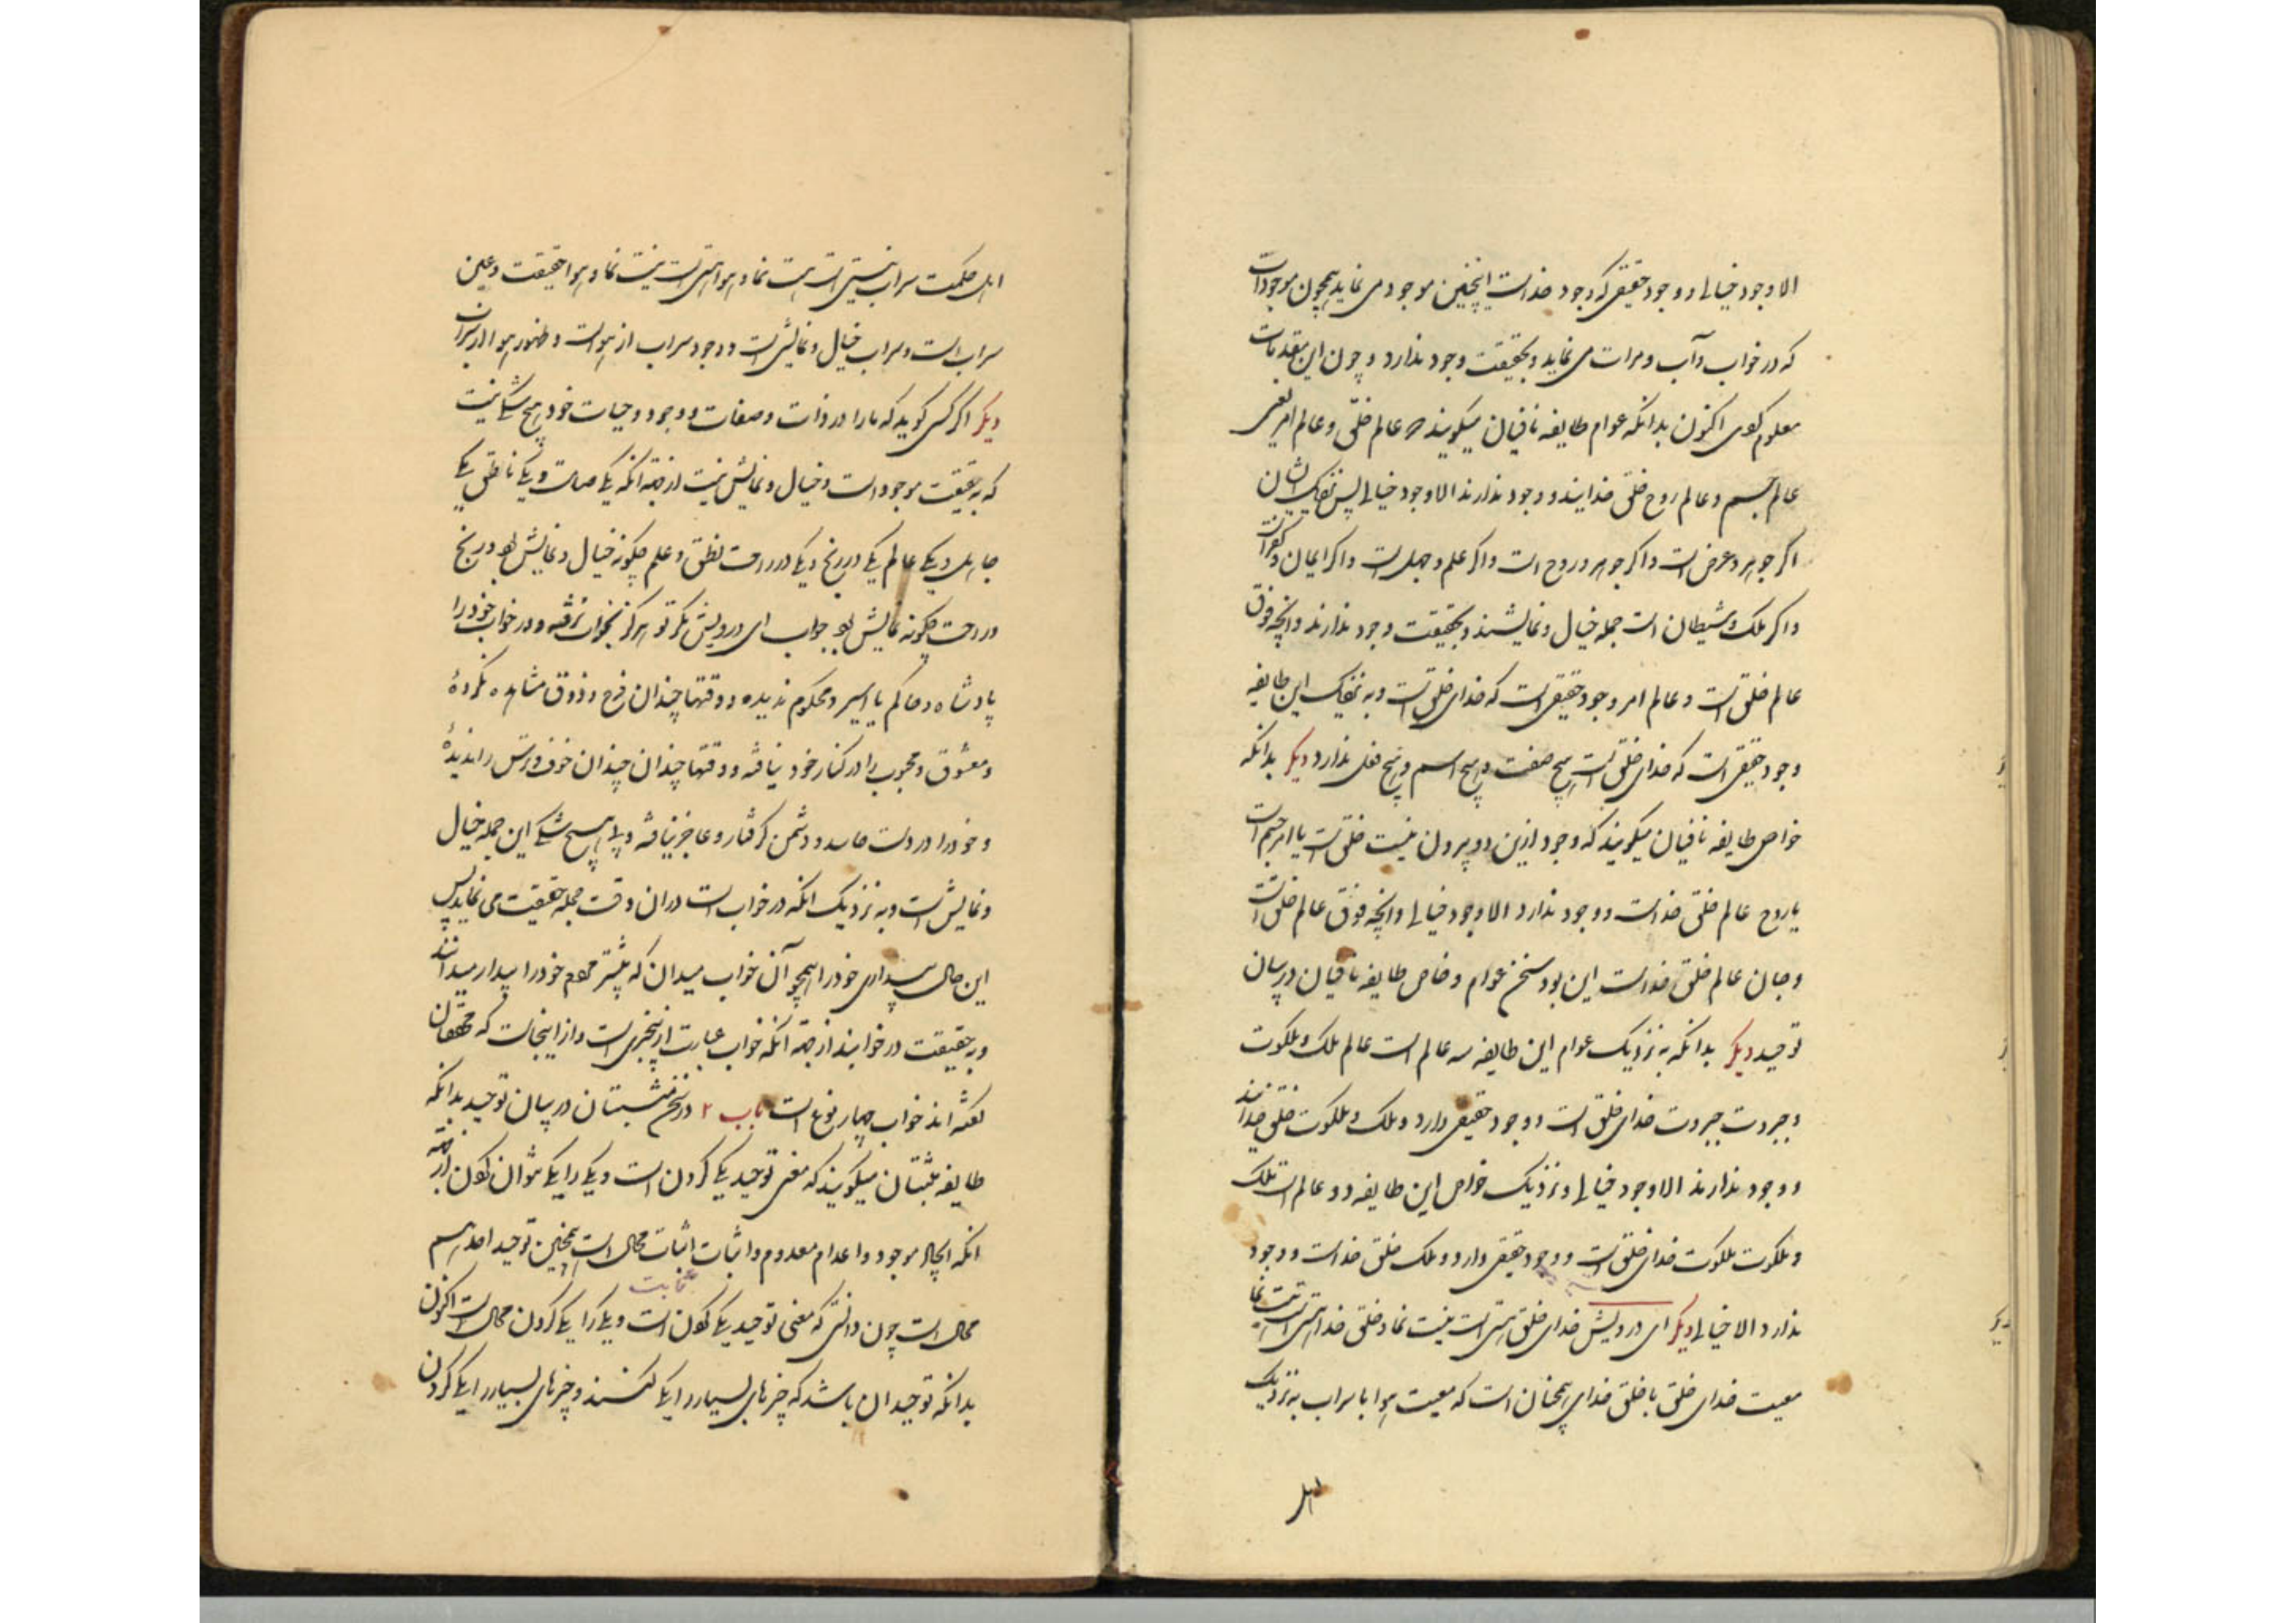 الا وجود خیالی و وجود حقیقی که وجود خداست اینچنین موجود می نماید همچون موجودات
که در خواب و آب و مرات می نماید و بحقیقت وجود ندارد و چون این مقدمات
معلوم کردی اکنون بدانکه عوام طایفه نافیان میکویند که عالم خلق و عالم امر یعنی
عالم جسم و عالم روح خلق خدایند و وجود ندارند الا وجود خیالی پس بنزدیک ایشان
اکر جوهر و عرض است و اکر جوهر و روح است و اکر علم و جهل است و اکر ایمان و کفر است
و اکر ملک و شیطان است جمله خیال و نمایشند و بحقیقت وجود ندارند و انچه فوق
عالم خلق است و عالم امر وجود حقیقی است که خدای خلق است و به نزدیک این طایفه
وجود حقیقی است که خدای خلق است هیچ صفت و هیچ اسم و هیچ فعل ندارد دیکر بدانکه
خواص طایفه نافیان میکویند که وجود ازین دو بیرون نیست خلق است یا امر جسم است
یا روح عالم خلق خداست و وجود ندارد الا وجود خیالی و انچه فوق عالم خلق است
و جان عالم خلق خداست این بود سخن عوام و خاص طایفه نافیان در بیان
توحید دیکر بدانکه به نزدیک عوام این طایفه سه عالم است عالم ملک و ملکوت
و جبروت جبروت خدای خلق است و وجود حقیقی دارد و ملک و ملکوت خلق خدایند
و وجود ندارند الا وجود خیالی و نزدیک خواص این طایفه دو عالم است ملک
و ملکوت ملکوت خدای خلق است و وجود حقیقی دارد و ملک خلق خداست و وجود
ندارد الا خیالی دیکر ای درویش خدای خلق هستی است نیست نما و خلق خدا نیستی است هست نما
معیت خدای خلق با خلق خدای همچنان است که معیت هوا با سراب به نزدیک
اهل
اهل حکمت سراب نیستی است هست نما و هوا هستی است نیست نما و هوا حقیقت و عین
سراب است و سراب خیال و نمایش است و وجود سراب از هواست و ظهور هوا از سراب است
دیکر اکر کسی کوید که ما را در ذات و صفات و وجود و حیات خود هیچ شکی نیست
که به حقیقت موجود است و خیال و نمایش نیست از جهة انکه یکی صامت و یکی ناطق یکی
جاهل و یکی عالم یکی در رنج و یکی در راحت نطق و علم چکونه خیال و نمایش بود و رنج
و راحت چکونه نمایش بود جواب ای درویش مکر تو هرکز بخواب نرفته و در خواب خود را
پادشاه و حاکم یا اسیر و محکوم ندیده و وقتها چندان فرح و ذوق مشاهده نکردهٔ
و معشوق و محبوب را در کنار خود نیافته و وقتها چندان چندان خوف و ترس را ندیدهٔ
و خود را در دست حاسد و دشمن کرفتار و عاجز نیافته و بی هیچ شکی این جمله خیال
و نمایش است و به نزدیک انکه در خواب است دران وقت جمله حقیقت می نماید پس
این حال بیداری خود را همچو آن خواب میدان که بیشتر مردم خود را بیدار میدانند
و به حقیقت در خوابند از جهة انکه خواب عبارت از بیخبری است و از اینجاست که محققان
کفته اند خواب چهار نوع است باب ۲ در سخن مثبتان در بیان توحید بدانکه
طایفه مثبتان میکویند که معنی توحید یکی کردن است و یکی را یکی نتوان کردن از جهة
انکه ایجاد موجود و اعدام معدوم و اثبات اثبات محال است همچنین توحید احد هم
محال است چون دانستی که معنی توحید یکی کردن است و یکی را یکی کردن محال است اکنون
بدانکه توحید ان باشد که چیزهای بسیار را یکی کنند و چیزهای بسیار را یکی کردن